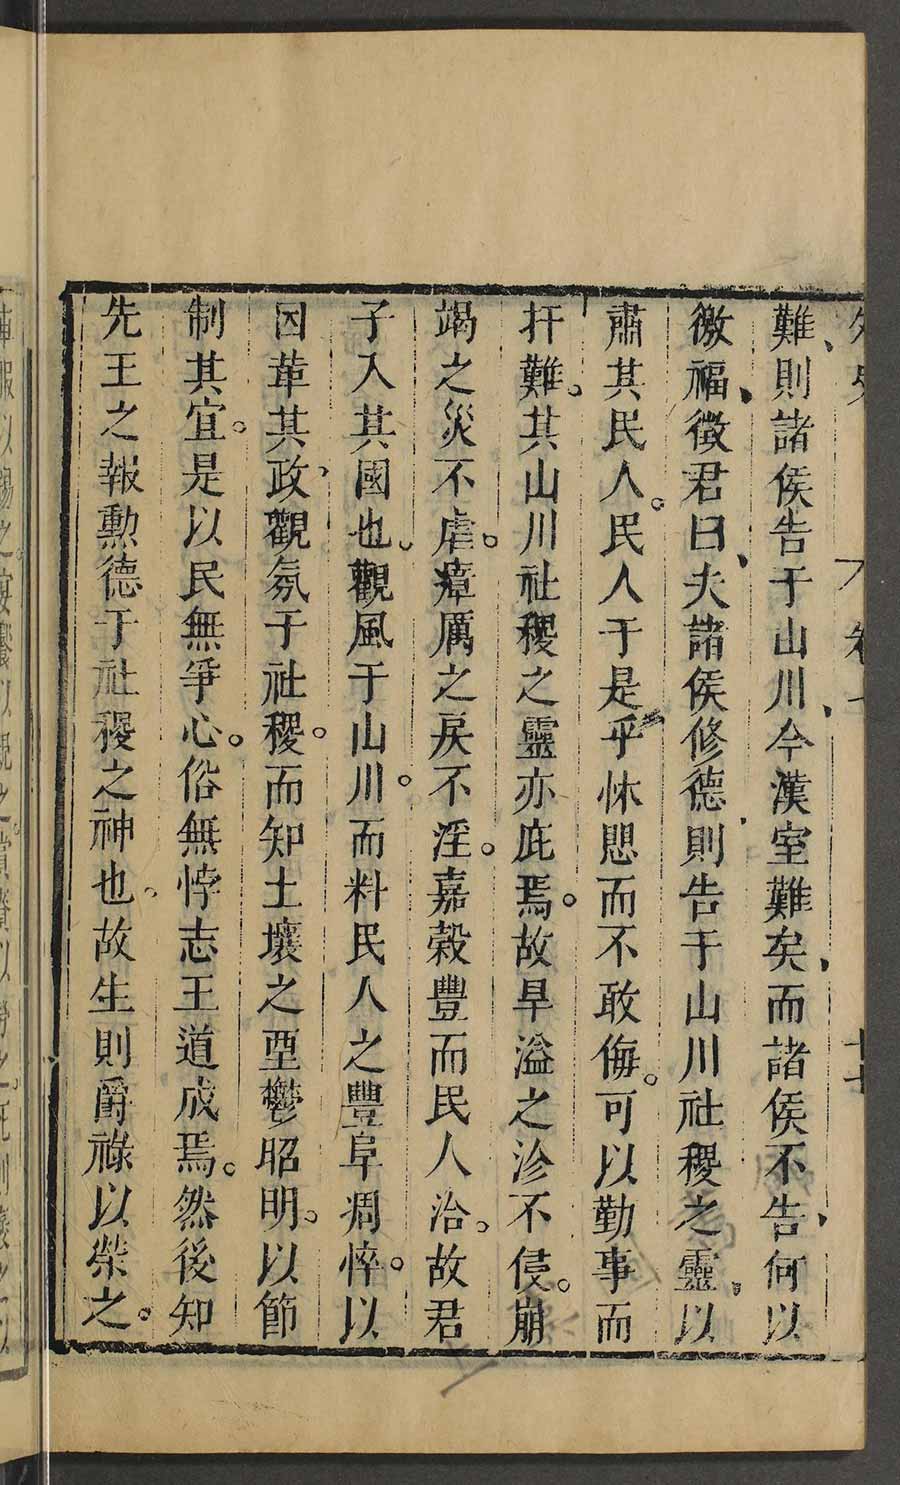 難則諸侯告于山川今漢室難矣而諸侯不告何以
徼福徵君曰夫諸侯修德則告于山川社稷之靈以
肅其民人。民人于是乎怵思而不敢侮。可以勤事而
扞難。其山川社稷之靈亦庇焉。故旱溢之沴不侵。崩
竭之災不虐。瘴厲之戾不淫。嘉穀豐而民人治。故君
子入其國也。觀風于山川。而料民人之豐阜凋悴。以
因革其政、觀氛于社稷。而知土壤之堙鬱昭明。以節
制其宜。是以民無爭心。俗無悖志王道成焉。然後知
先王之報勲德于社稷之神也。故生則爵祿以榮之。